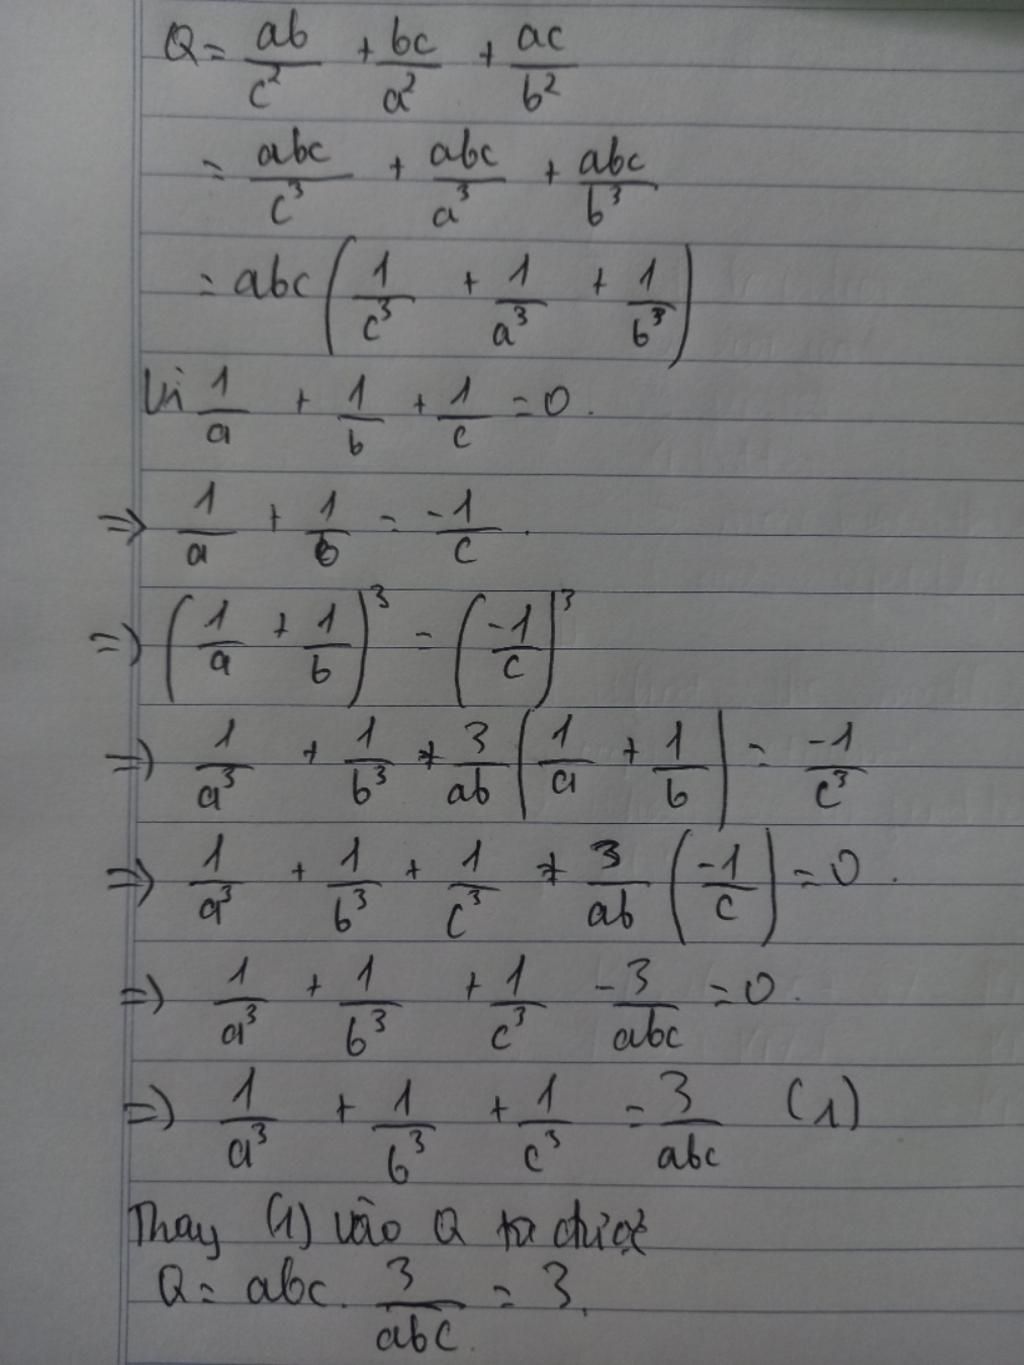 Q = ab/c² + bc/a² + ac/b²
= abc/c³ + abc/a³ + abc/b³
= abc (1/c³ + 1/a³ + 1/b³)
Vì 1/a + 1/b + 1/c = 0.
=> 1/a + 1/b = -1/c.
=> (1/a + 1/b)³ = (-1/c)³
=> 1/a³ + 1/b³ + 3/ab (1/a + 1/b) = -1/c³
=> 1/a³ + 1/b³ + 1/c³ + 3/ab (-1/c) = 0.
=> 1/a³ + 1/b³ + 1/c³ - 3/abc = 0.
=> 1/a³ + 1/b³ + 1/c³ = 3/abc (1)
Thay (1) vào Q ta được
Q = abc. 3/abc = 3.